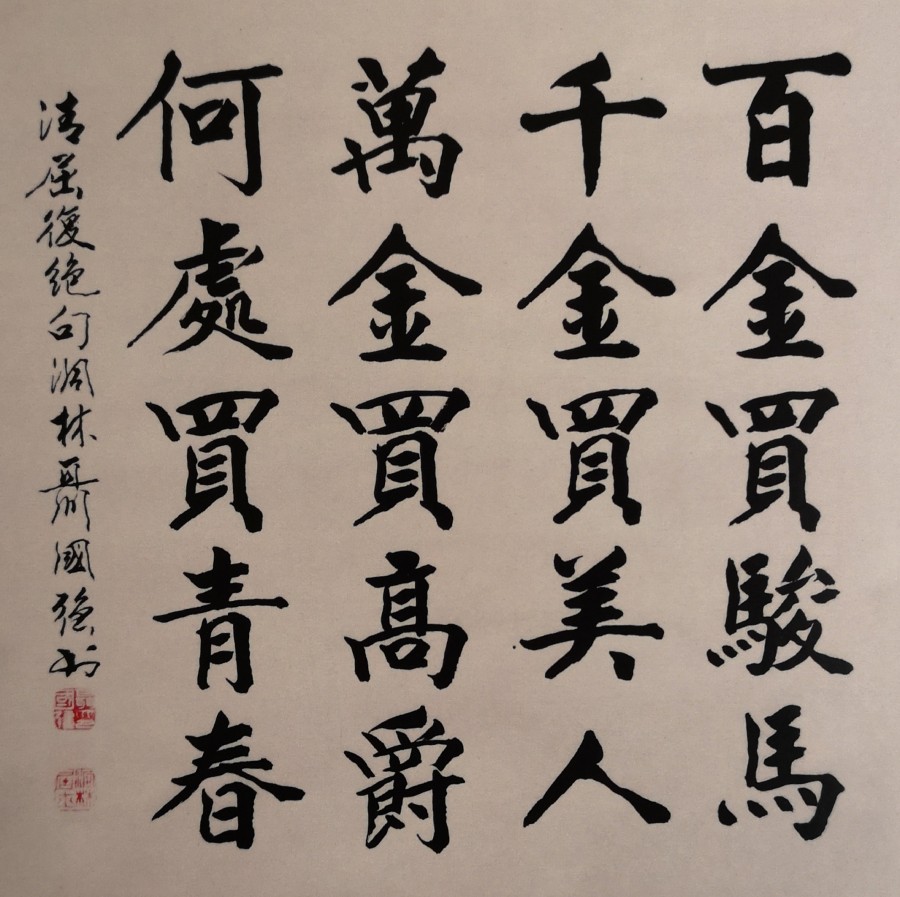 百金買駿馬
千金買美人
萬金買高爵
何處買青春
清屈復绝句澗林聶國強书